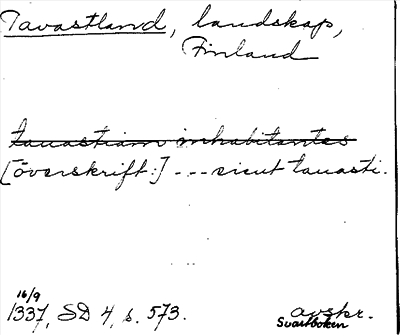 Tavastland, landskap,
Finland
tauastiam inhabitantes
[överskrift:] --- sicut tauasti.
16/9
1337, SD 4, s. 573.
avskr.
Svartboken